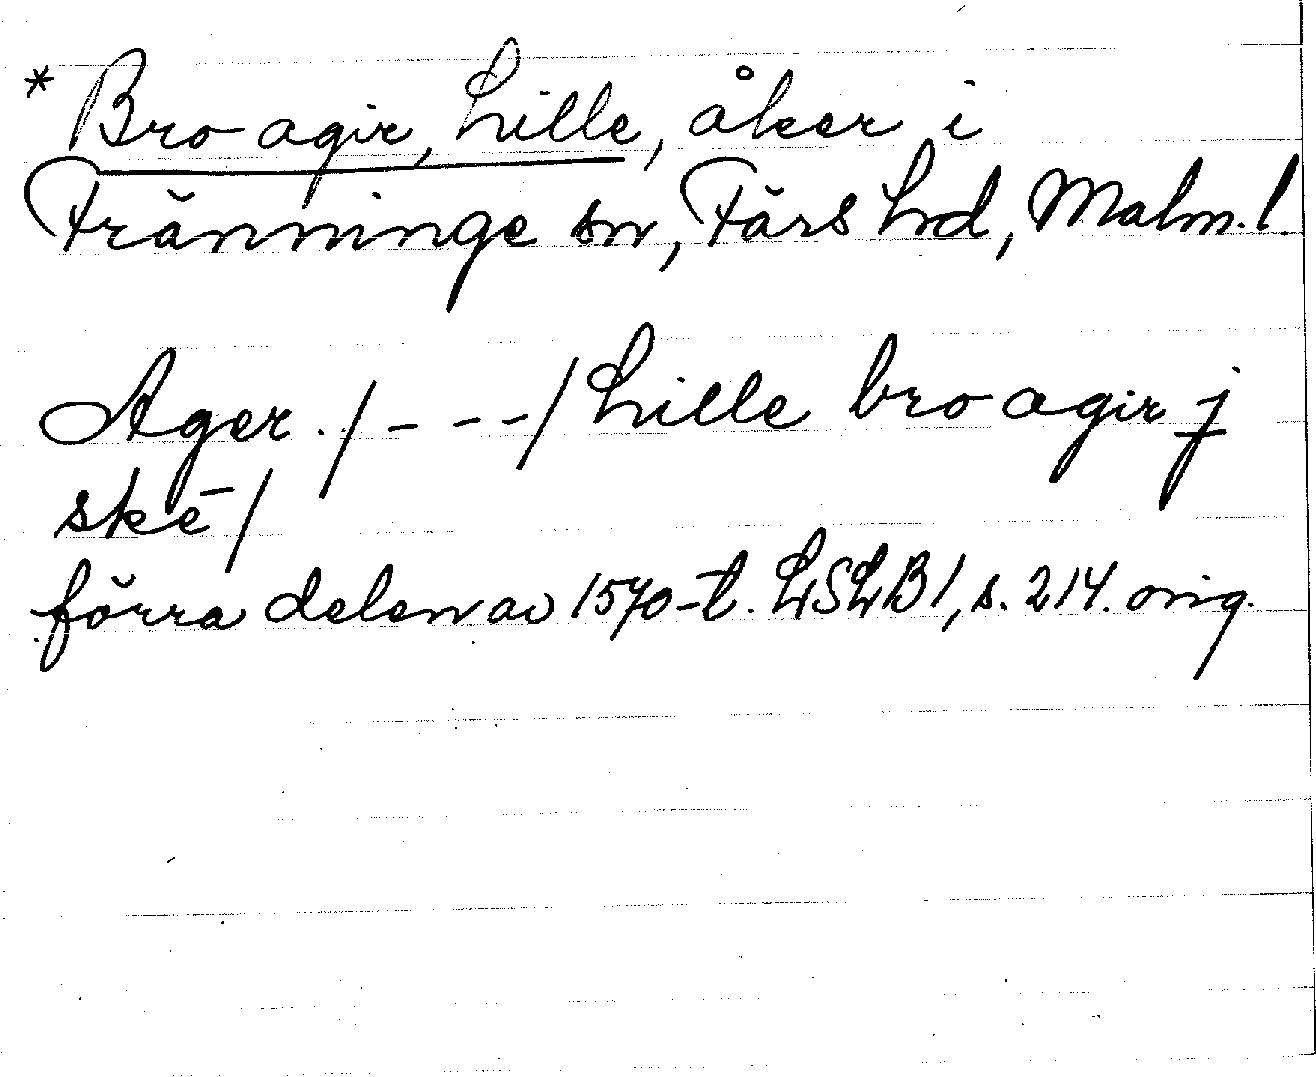 * Bro agir, Lille, åker i
Tränninge sn, Färs hd, Malm. l.
Ager. /---/ Lille bro agir j
skē /
förra delen av 1570-t. LSLB 1, s. 214. orig.